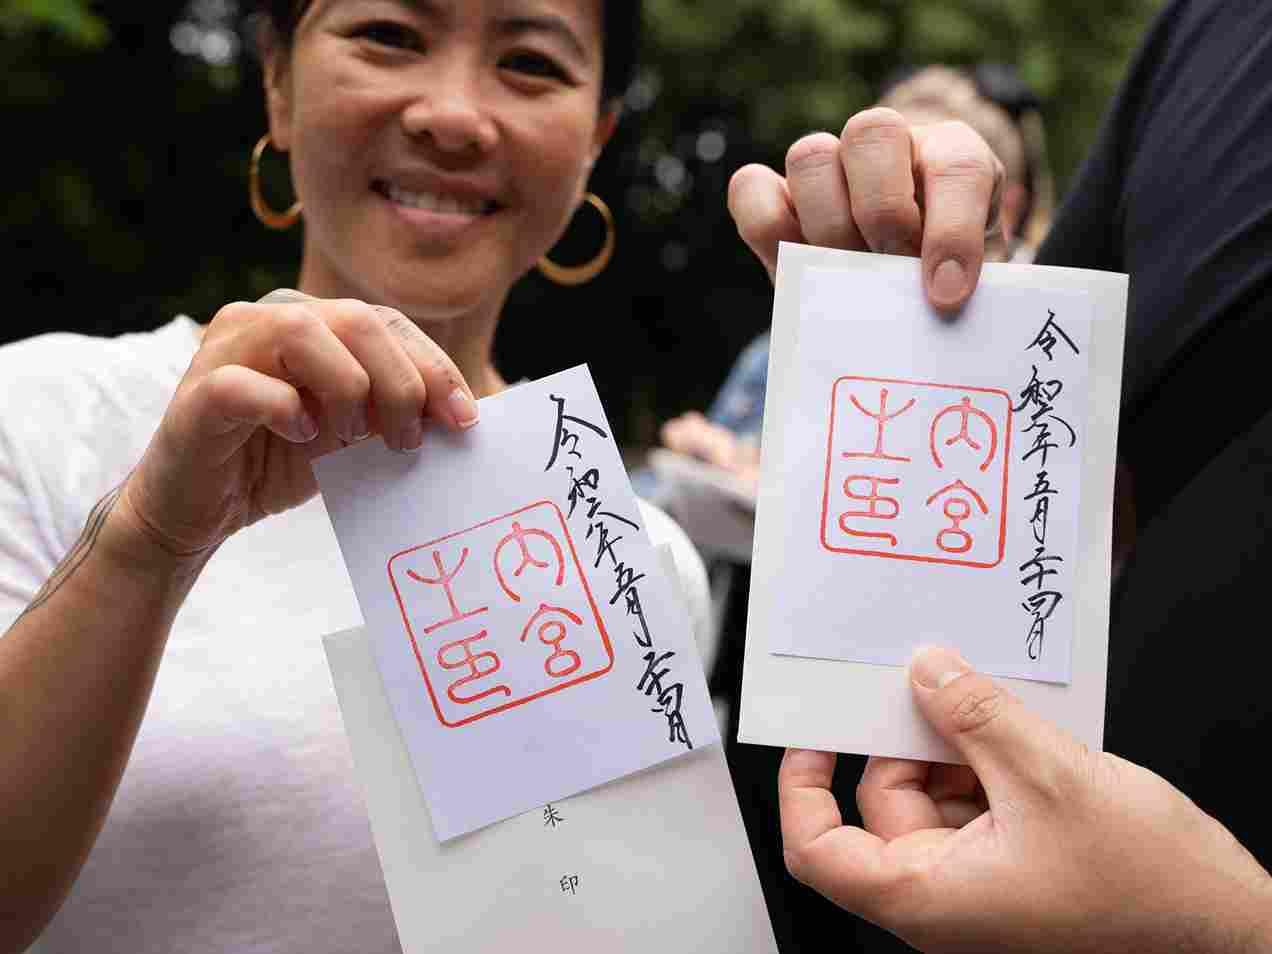 令和六年五月二十四日
内宮
之印
朱印
令和六年五月二十四日
内宮
之印